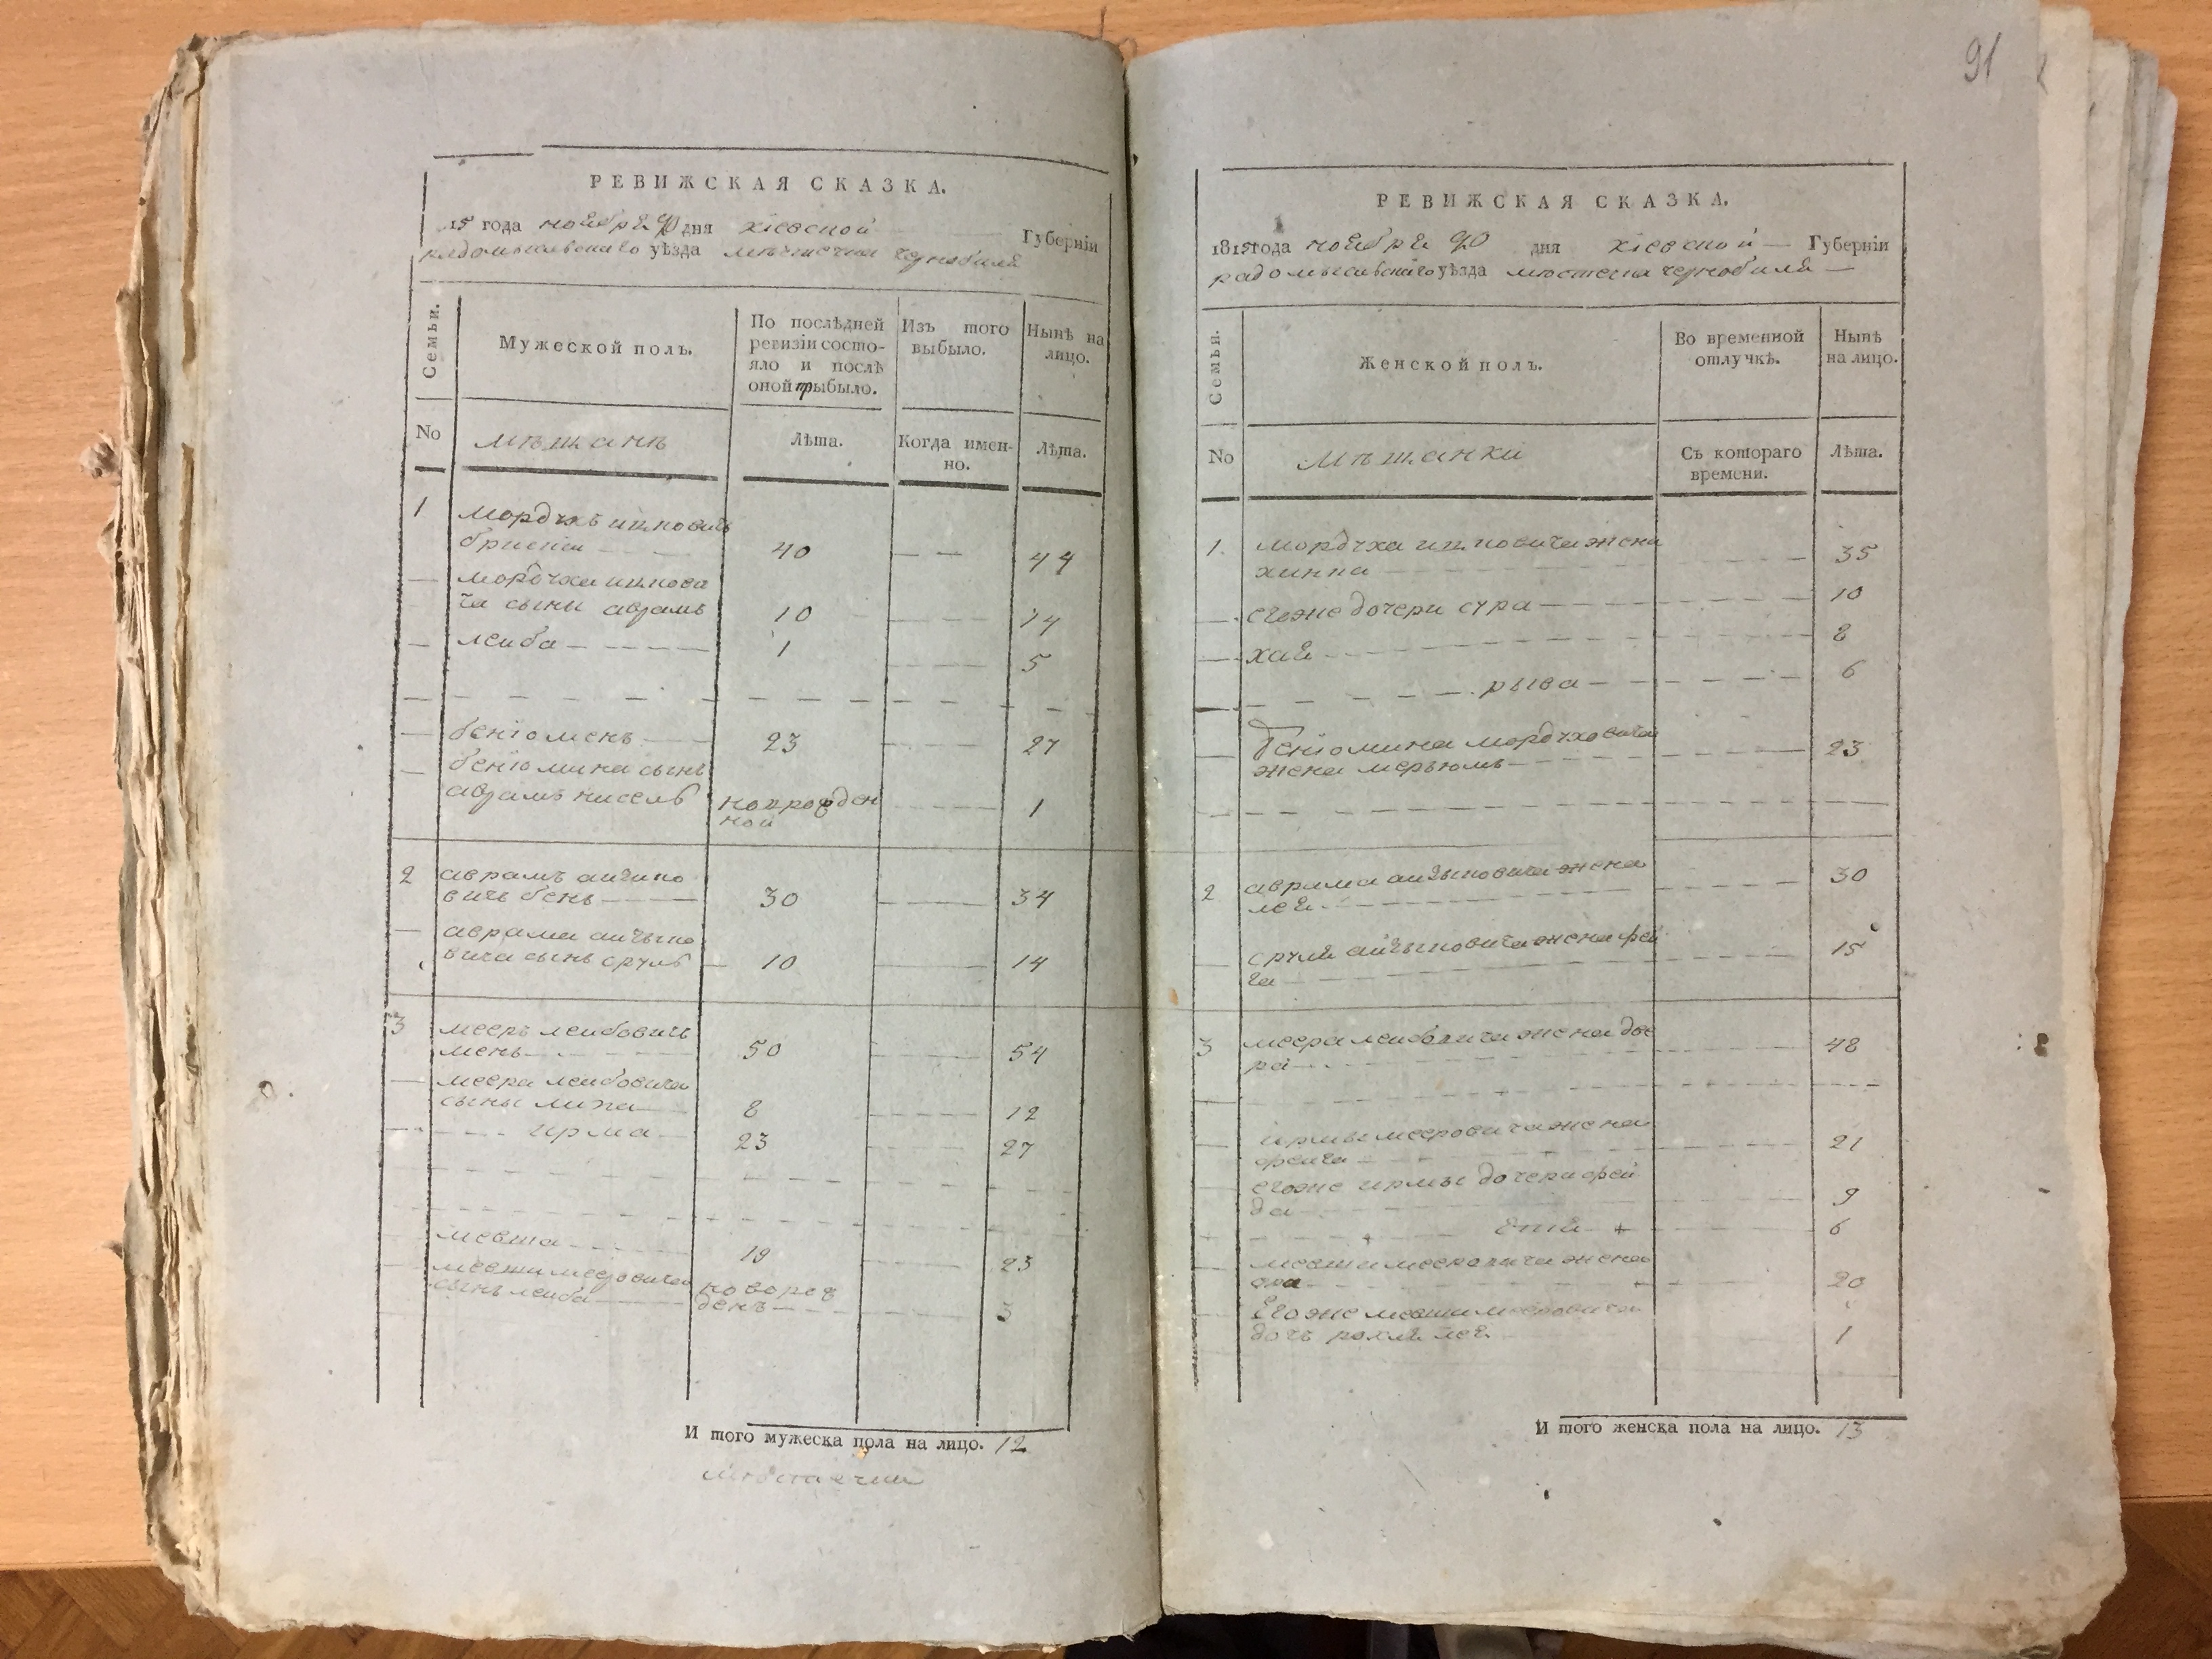 РЕВИЖСКАЯ СКАЗКА.
15 года ноября 20 дня кіевской Губерніи
радомысльскаго уѣзда мѣстечка чернобиля
Семьи.
Мужеской полъ.
По послѣдней
ревизіи состо-
яло и послѣ
оной прыбыло.
Изъ того
выбыло.
Нынѣ на
лицо.
No
мѣщанѣ
Лѣта.
Когда имен-
но.
Лѣта.
1 мордухъ ицковичъ
40 44
мордуха ицкови
ча сыны аврамъ 10 14
леиба 1 5
беніоменъ 23 27
беніомина сынъ
аврамъ нисель новрожден 1
ной
2 аврамъ
вичъ бенъ 30 34
аврама
вича сынъ сруль 10 14
3 мееръ леибовичъ
менъ 50 54
меера леибовича
сыны 8 12
ирма 23 27
мевша 19 23
мевши мееровича новорож
сынъ леиба денъ 3
И того мужеска пола на лицо. 12
91
РЕВИЖСКАЯ СКАЗКА.
1815 года ноября 20 дня кіевской Губерніи
радомысльскаго уѣзда мѣстечка чернобиля
Семьи.
Женской полъ.
Во временной
отлучкѣ.
Нынѣ
на лицо.
No
мѣщанки
Съ котораго
времени.
Лѣта.
1. мордуха ицковича жена
хинна 35
егоже дочери сура 10
хая 8
рыва 6
беніомина мордуховича
жена мерьюмъ 23
2 аврама жена 30
лея
сруля жена фей 15
га
3 меера леибовича жена дво
ра 48
ирмы мееровича жена
феига 21
егоже ирмы дочери фей
да 9
етя 6
мевши мееровича жена
20
Егоже мевши мееровича
дочъ рохля лея 1
И того женска пола на лицо. 13